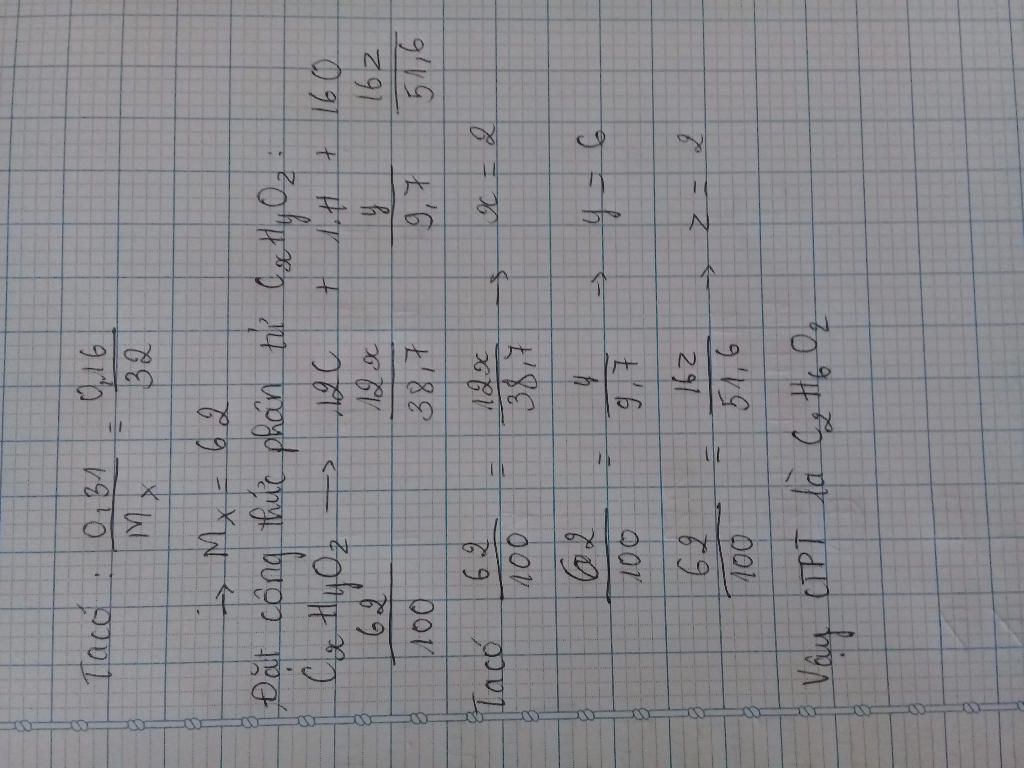 Ta có : 0,31/Mx = 0,16/32
→ Mx = 62
Đặt công thức phân tử CxHyO2:
CxHyO2 → 12C + 1H + 16O
62/100 12x/38,7 y/9,7 16z/51,6
Ta có 62/100 = 12x/38,7 → x = 2
62/100 = y/9,7 → y = 6
62/100 = 16z/51,6 → z = 2
Vậy CTPT là C2H6O2